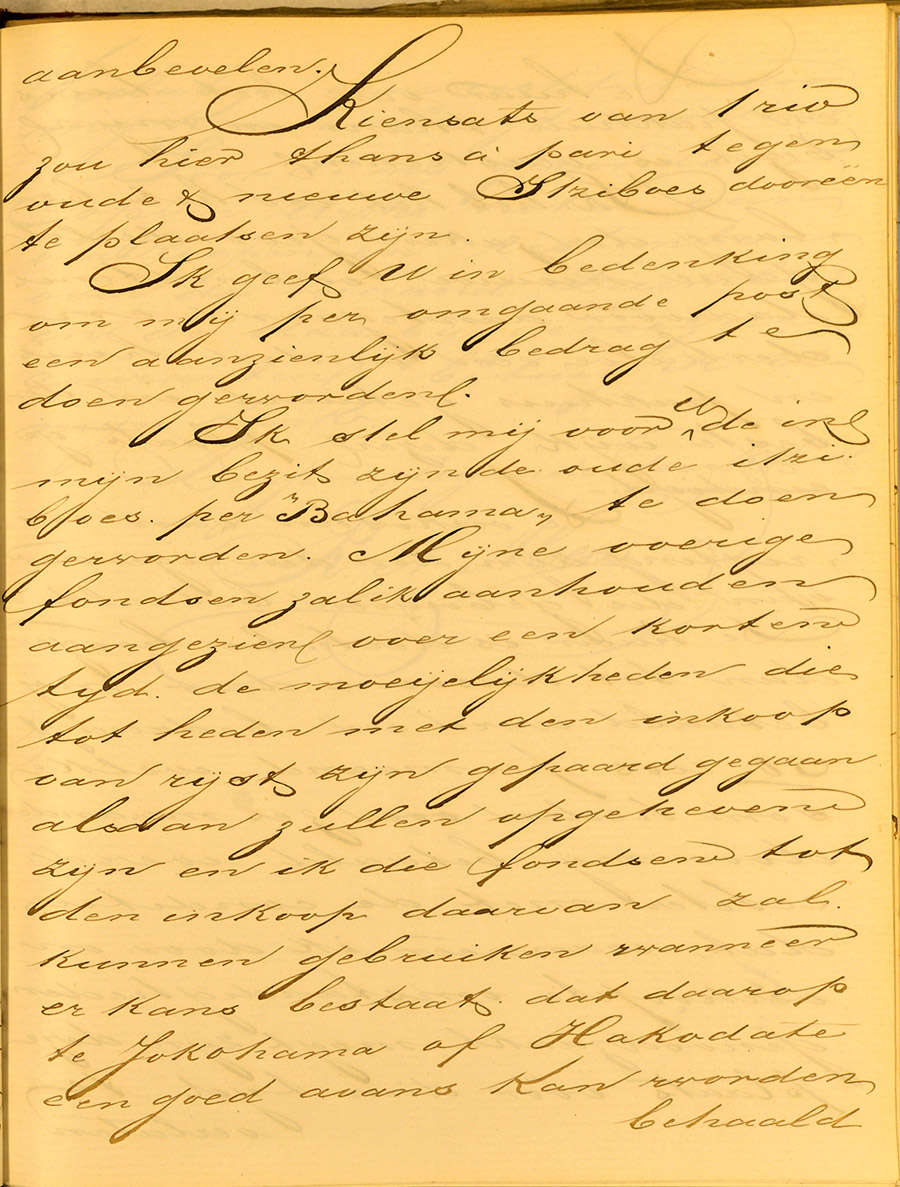 aanbevelen.
Kiensats van 1 rio
zou hier thans á pari tegen
oude & nieuwe Itziboes dooreen
te plaatsen zijn.
Ik geef U in bedenking
om mij per omgaande post
een aanzienlijk bedrag te
doen geworden.
Ik stel mij voor U de in
mijn bezit zijnde oude itzi
boes. per "Bahama" te doen
geworden. Mijne overige
fondsen zal ik aanhouden
aangezien over een korten
tijd. de moeijelijkheden die
tot heden met den inkoop
van rijst zijn gepaard gegaan
alsdan zullen opgeheven
zijn en ik die fondsen tot
den inkoop daarvan zal.
kunnen gebruiken wanneer
er kans bestaat dat daarop
te Jokohama of Hakodate
een goed avans kan worden
behaald